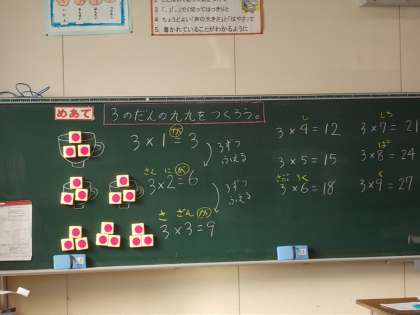 4 ちょうどよい「声の大きさ」と「はやさ」で
5 書かれていることがわかるように
めあて
3のだんの九九をつくろう。
が
3×1=3
3ずつ
ふえる
さん に が
3×2=6
3ずつ
ふえる
さ ざん が
3×3=9
し
3×4=12
3×5=15
さぶ ろく
3×6=18
しち
3×7=21
ぱ
3×8=24
く
3×9=27